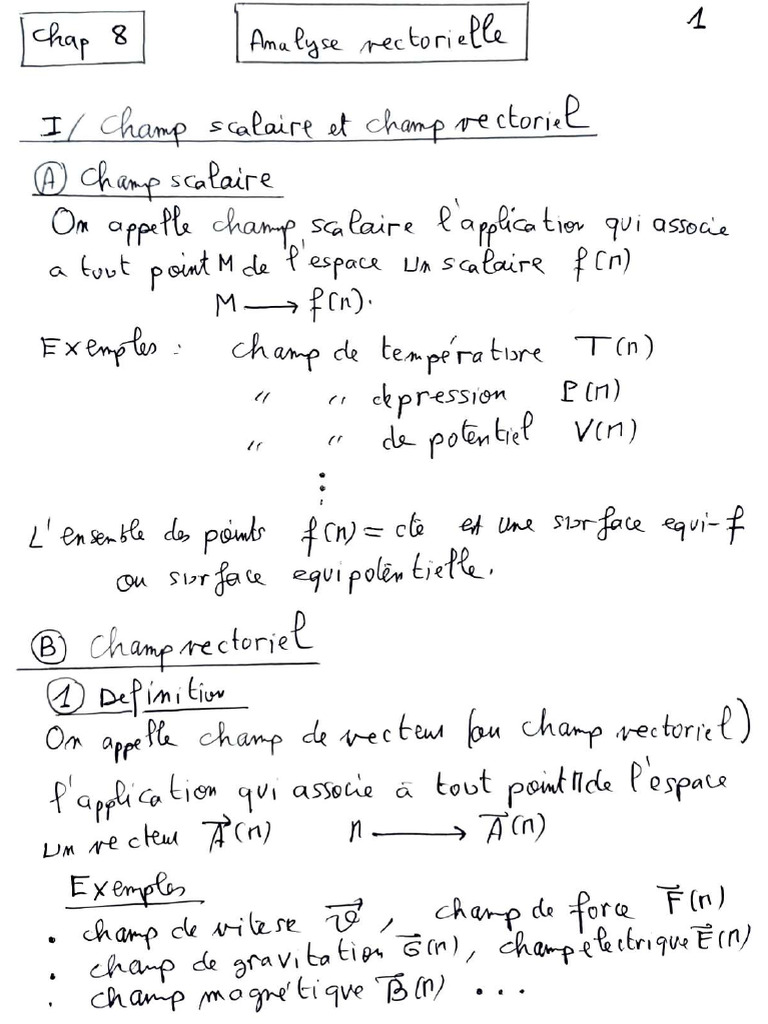 Chap 8
Analyse vectorielle
1
I/ Champ scalaire et champ vectoriel
(A) Champ scalaire
On appelle champ scalaire l'application qui associe
a tout point M de l'espace un scalaire f(M)
M ⟶ f(M).
Exemples : champ de température T(M)
" " de pression P(M)
" " de potentiel V(M)
⋮
L'ensemble des points f(M) = cte est une surface equi-f
ou surface equipotentielle.
(B) Champ vectoriel
(1) Definition
On appelle champ de vecteur (ou champ vectoriel)
l'application qui associe à tout point M de l'espace
un vecteur A⃗(M) M ⟶ A⃗(M)
Exemples
. champ de vitesse v⃗, champ de force F⃗(M)
. champ de gravitation G⃗(M), champ électrique E⃗(M)
. champ magnétique B⃗(M) ...